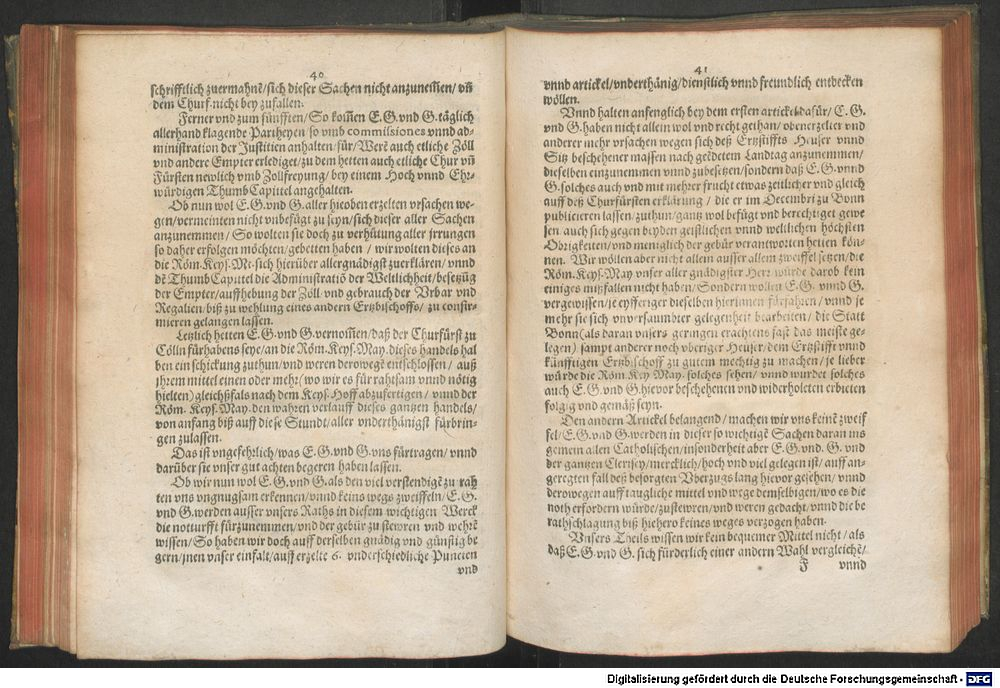 40
schrifftlich zuermahnē/sich dieser Sachen nicht anzunem̃en/ vñ
dem Churf. nicht bey zufallen.
Ferner vnd zum fünfften/ So kom̃en E. G. vnd G. täglich
allerhand klagende Partheyen so vmb commissiones vnnd ad-
ministration der Justitien anhalten/ für/ Werē auch etliche Zöll
vnd andere Empter erlediget/ zu dem hetten auch etliche Chur vñ
Fürsten newlich vmb Zollfreyung/ bey einem Hoch vnnd Ehr-
würdigen Thumb Capittel angehalten.
Ob nun wol E. G. vnd G. aller hieoben erzelten vrsachen we-
gen/ vermeinten nicht vnbefügt zu seyn/ sich dieser aller Sachen
anzunemmen/ So wolten sie doch zu verhütung aller jrrungen
so daher erfolgen möchten/ gebetten haben / wir wolten dieses an
die Röm. Keys. Mt. sich hierüber allergnädigst zuerklären/ vnnd
dē Thumb Capittel die Administratiõ der Weltlichheit/ besetzūg
der Empter/ auffhebung der Zöll/ vnd gebrauch der Vrbar vnd
Regalien/ biß zu wehlung eines andern Ertzbischoffs/ zu confir-
mieren gelangen lassen.
Letzlich hetten E. G. vnd G. vernom̃en/ daß der Churfürst zu
Cölln fürhabens seye/ an die Röm. Keys. May. dieses handels hal
ben ein schickung zuthun/ vnd weren derowegē entschlossen / auß
jhrem mittel einen oder mehr (wo wir es für rahtsam vnnd nötig
hielten) gleichßfals nach dem Keys. Hoff abzufertigen / vnnd der
Röm. Keys. May. den wahren verlauff dieses gantzen handels/
von anfang biß auff diese Stundt/ aller vnderthänigst fürbrin-
gen zulassen.
Das ist vngefehrlich/ was E. G. vnd G. vns fürtragen/ vnnd
darüber sie vnser gut achten begeren haben lassen.
Ob wir nun wol E. G. vnd G. als den viel verstendigē zu rah
ten vns vngnugsam erkennen/ vnnd keins wegs zweiffeln/ E. G.
vnd G. werden ausser vnsers Raths in diesem wichtigen Werck
die notturfft fürzunemmen/ vnd der gebür zu stewren vnd wehrē
wissen/ So haben wir doch auff derselben gnädig vnd günstig be
gern/ jnen vnser einfalt/ auff erzelte 6. vnderschiedliche Puncten
vnd
41
vnnd artickel/ vnderthänig/ dienstlich vnnd freundlich entdecken
wöllen.
Vnnd halten anfenglich bey dem ersten artickel dafür/ E. G.
vnd G. haben nicht allein wol vnd recht gethan/ obenerzelter vnd
anderer mehr vrsachen wegen sich deß Ertzstiffts Heuser vnnd
Sitz beschehener massen nach geēdetem Landtag anzunemmen/
dieselben einzunemmen vnnd zubesetzen/ sondern daß E. G. vnnd
G. solches auch vnd mit mehrer frucht etwas zeitlicher vnd gleich
auff deß Churfürsten erklärung / die er im Decembri zu Bonn
publicieren lassen/ zuthun/ gantz wol befügt vnd berechtiget gewe
sen/ auch sich gegen beyden geistlichen vnnd weltlichen höchsten
Obrigkeiten/ vnd meniglich der gebür verantworten hetten kön-
nen. Wir wöllen aber nicht allein ausser allem zweiffel setzen/ die
Röm. Keys. May vnser aller gnädigster Herr würde darob kein
einiges mißfallen nicht haben/ Sondern wollen E. G. vnnd G.
vergewissen/ je eyfferiger dieselben hierinnen fürfahren/ vnnd je
mehr sie sich vnversaumbter gelegenheit bearbeiten/ die Statt
Bonn (als daran vnsers geringen erachtens fast das meiste ge-
legen) sampt anderer noch vberiger Heuser/ dem Ertzstifft vnnd
künfftigen Ertzbischoff zu gutem mechtig zu machen/ je lieber
würde die Röm. Key May. solches sehen/ vnnd würdet solches
auch E. G. vnd G. hievor beschehenen vnd widerholeten erbieten
folgig vnd gemäß seyn.
Den andern Artickel belangend/ machen wir vns keinē zweif
fel/ E. G. vnd G. werden in dieser so wichtigē Sachen daran ins
gemein allen Catholischen/ insonderheit aber E. G. vnd. G. vnd
der gantzen Clerisey/ mercklich/ hoch vnd viel gelegen ist/ auff an-
geregten fall deß besorgten Vberzugs lang hievor gesehen/ vnnd
derowegen auff taugliche mittel vnd wege demselbigen/ wo es die
noth erfordern würde/ zustewren/ vnd weren gedacht/ vnnd die be
rathschlagung biß hiehero keines weges verzogen haben.
Vnsers Theils wissen wir kein bequemer Mittel nicht / als
daß E. G. vnd G. sich fürderlich einer andern Wahl vergleichē/
F vnnd
Digitalisierung gefördert durch die Deutsche Forschungsgemeinschaft - DFG